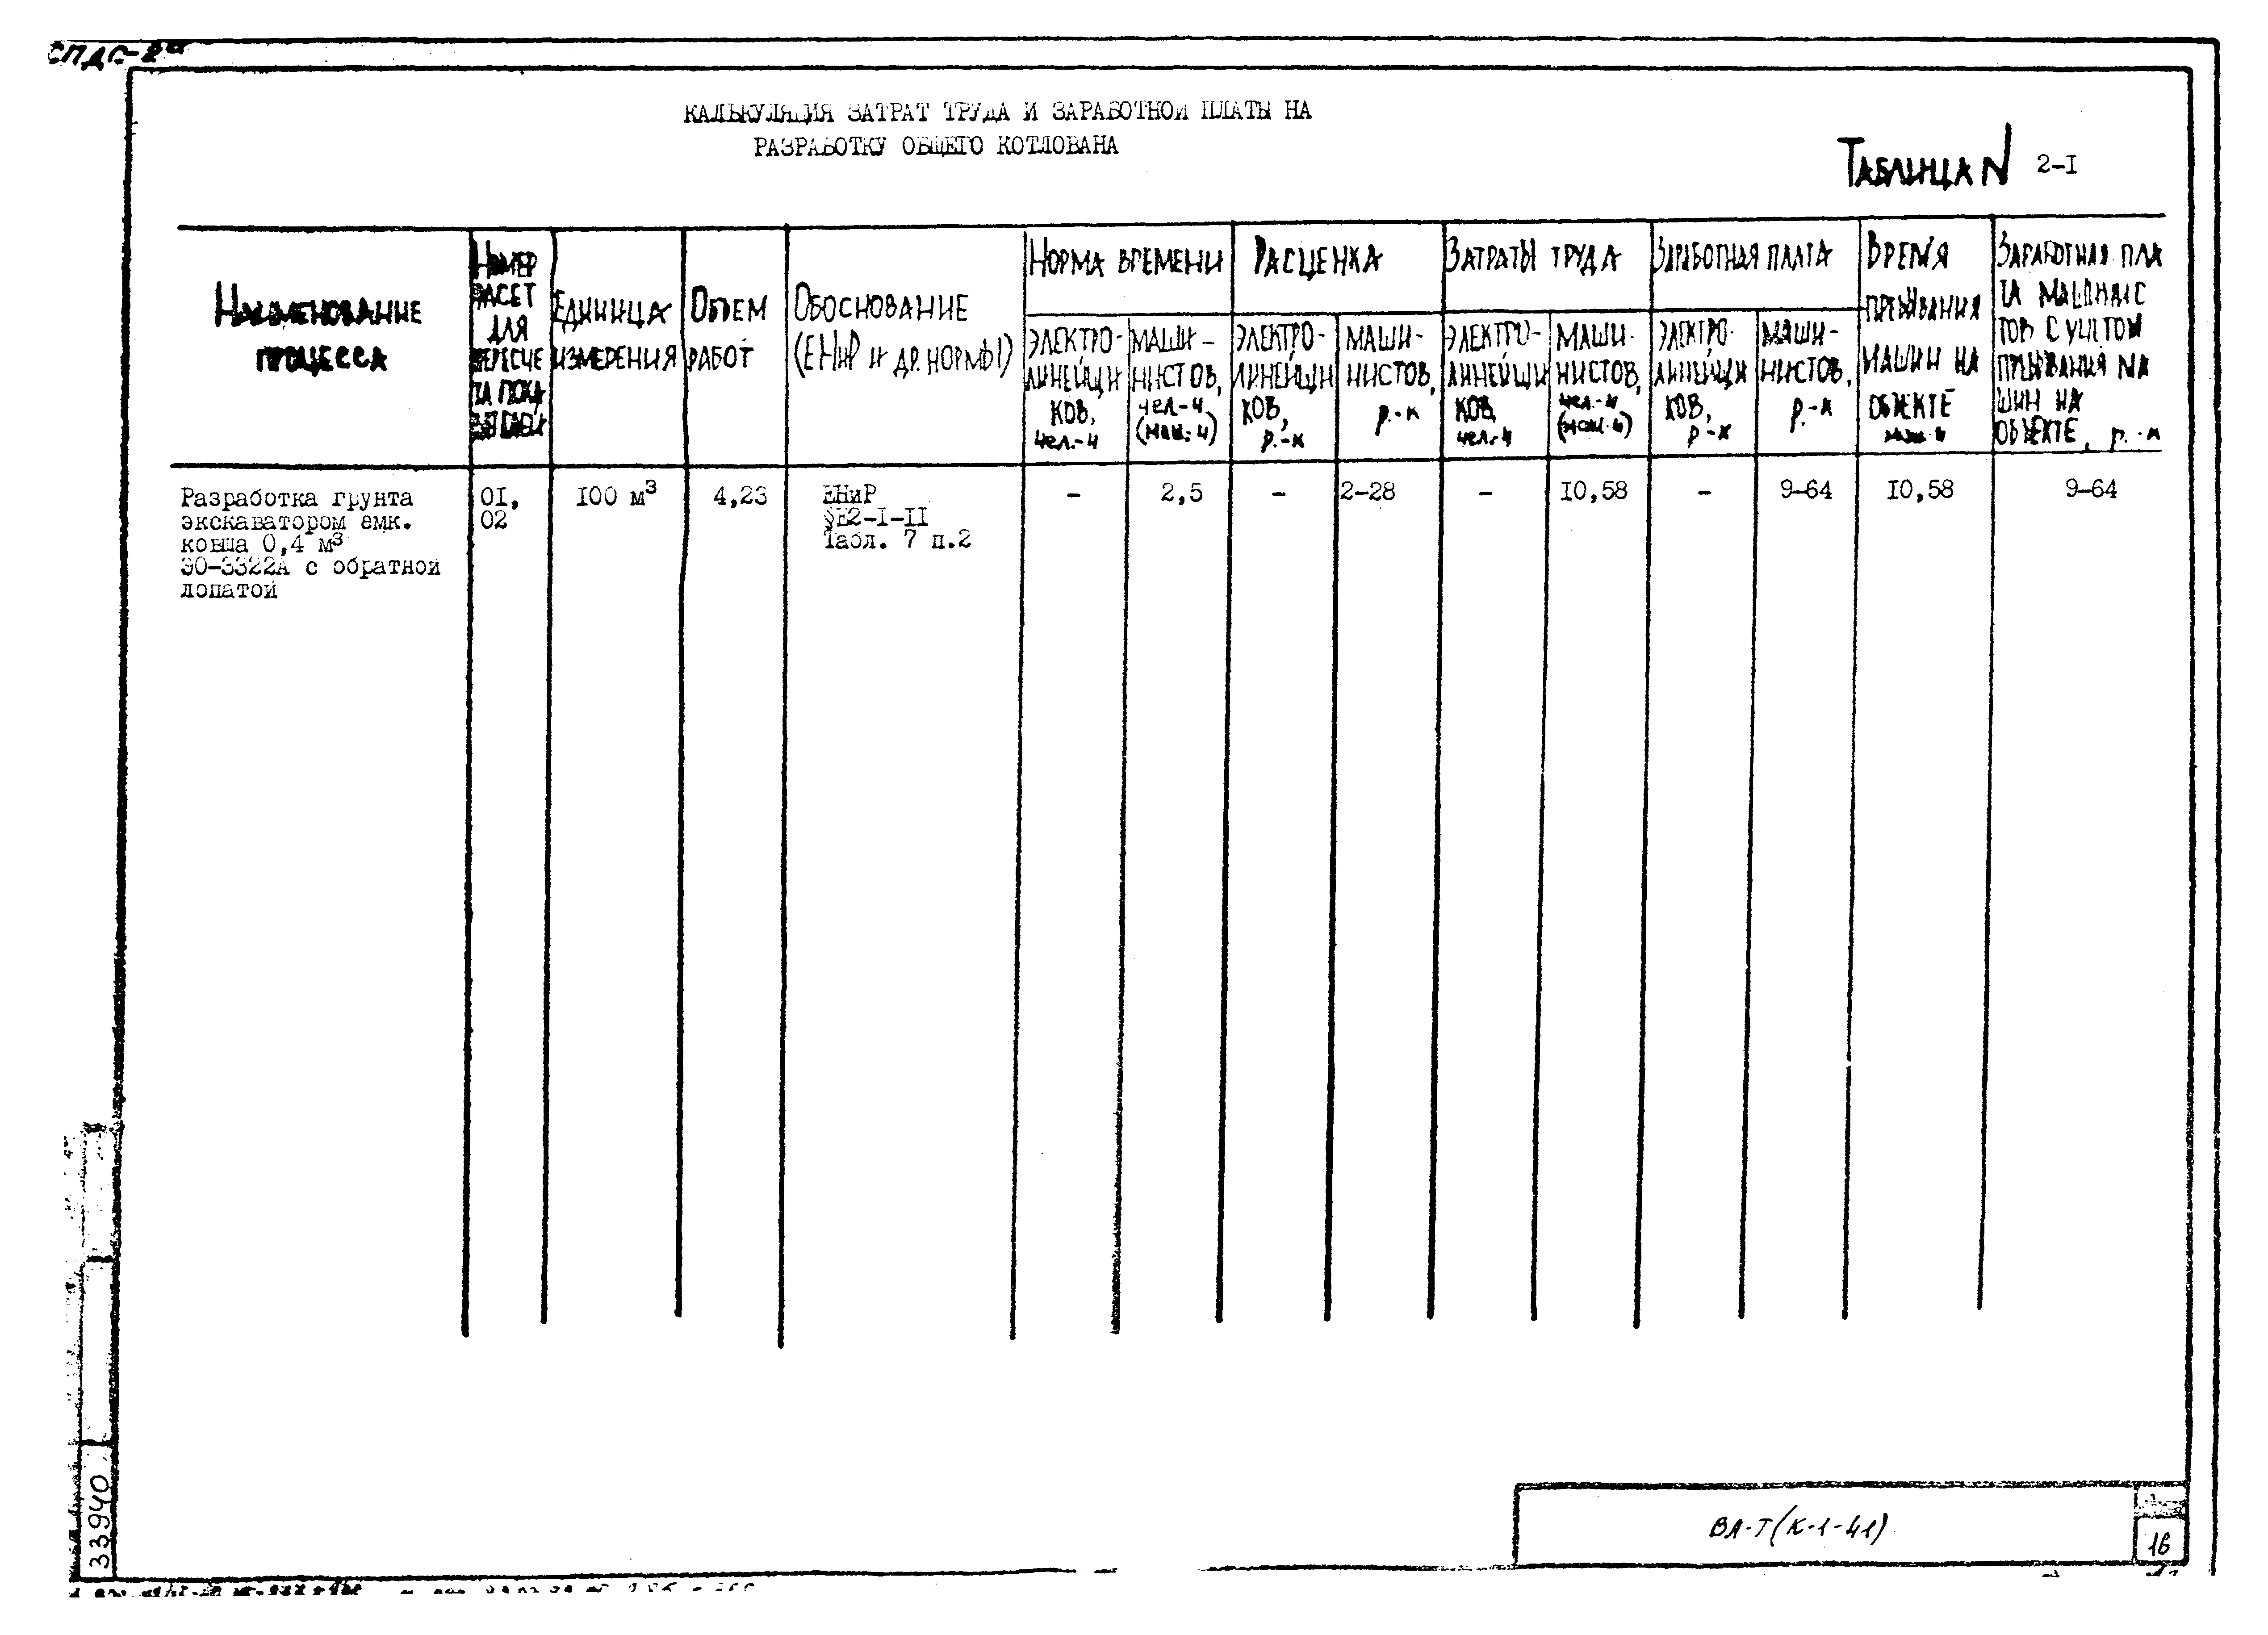 СПДС-2
КАЛЬКУЛЯЦИЯ ЗАТРАТ ТРУДА И ЗАРАБОТНОЙ ПЛАТЫ НА
РАЗРАБОТКУ ОБЩЕГО КОТЛОВАНА
ТАБЛИЦА N 2-I
НАИМЕНОВАНИЕ
ПРОЦЕССА
НОМЕР
РАСЕТ
ДЛЯ
ПЕРЕСЧЕ
ТА ПОКА
ЗАТЕЛЕЙ
ЕДИНИЦА
ИЗМЕРЕНИЯ
ОБЪЕМ
РАБОТ
ОБОСНОВАНИЕ
(ЕНиР И ДР. НОРМЫ)
НОРМА ВРЕМЕНИ
ЭЛЕКТРО-
ЛИНЕЙЩИ
КОВ,
чел.-ч
МАШИ-
НИСТОВ,
чел-ч
(маш.-ч)
РАСЦЕНКА
ЭЛЕКТРО-
ЛИНЕЙЩИ
КОВ,
р.-к
МАШИ-
НИСТОВ,
р.-к
ЗАТРАТЫ ТРУДА
ЭЛЕКТРО-
ЛИНЕЙЩИ
КОВ,
чел.-ч
МАШИ-
НИСТОВ,
чел.-ч
(маш.-ч)
ЗАРАБОТНАЯ ПЛАТА
ЭЛЕКТРО-
ЛИНЕЙЩИ
КОВ,
р-к
МАШИ-
НИСТОВ,
р.-к
ВРЕМЯ
ПРЕБЫВАНИЯ
МАШИН НА
ОБЪЕКТЕ
маш.-ч
ЗАРАБОТНАЯ ПЛА
ТА МАШИНИС
ТОВ С УЧЕТОМ
ПРЕБЫВАНИЯ МА
ШИН НА
ОБЪЕКТЕ, р.-к
Разработка грунта
экскаватором емк.
ковша 0,4 м³
ЭО-3322А с обратной
лопатой
OI,
02
I00 м³
4,23
ЕНиР
§Е2-I-II
Табл. 7 п.2
-
2,5
-
2-28
-
I0,58
-
9-64
I0,58
9-64
33940
ВА-Т(К-1-41)
16